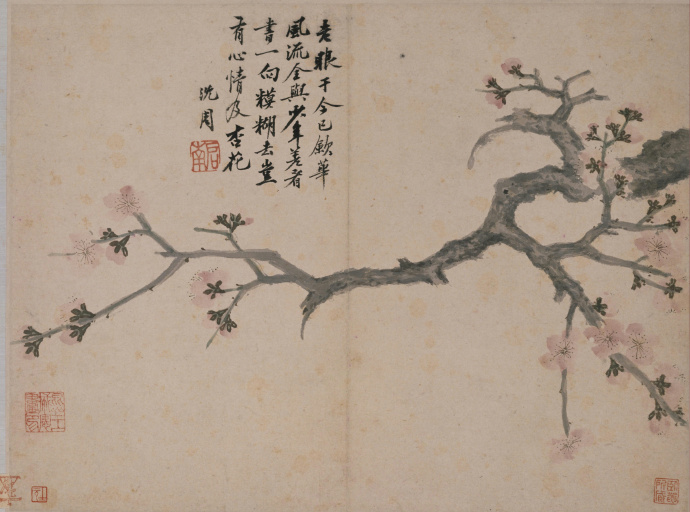 老眼于今已歛華
風流全與少年差看
書一向糢糊去豈
有心情及杏花
沈周
启南